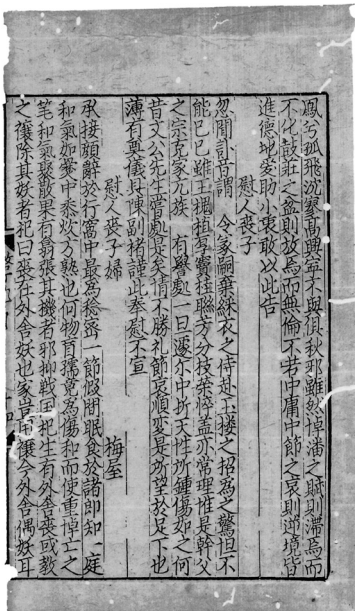 鳳兮孤飛沉寥高興亦不與俱秋邪雖然悼潘之賦則滞焉而
不化鼓莊之盆則放焉而無倫不若中庸中節之哀則逆境皆
進德地爰助小衷敢以此告
慰人丧子
忽聞訃音謂　令家嗣棄綵衣之侍赴玉楼之招為之驚怛不
能已已雖玉槐植砌竇桂聯芳分枝荣悴盖亦常理惟是幹父
之宗克家亢族　有譽處一旦遽尓中折天性所鍾傷如之何
昔文公先生嘗處是矣情不勝礼節哀順変是所望於足下也
薄有奠儀具陳副楮謹此奉慰不宣
慰人丧子婦　梅室
承接頰辭於行窩中最為稔密一節假間眠食於諸郎知一庭
和氣如甕中黍炊方熟也何物育孺竟為傷和而使重悼亡之
笔和氣聚散果有翕張其機者邪抑戟同祀生有外舎丧或教
之禳除其妖者祀曰丧在外舎妖也家言當禳今外舎偶妖耳